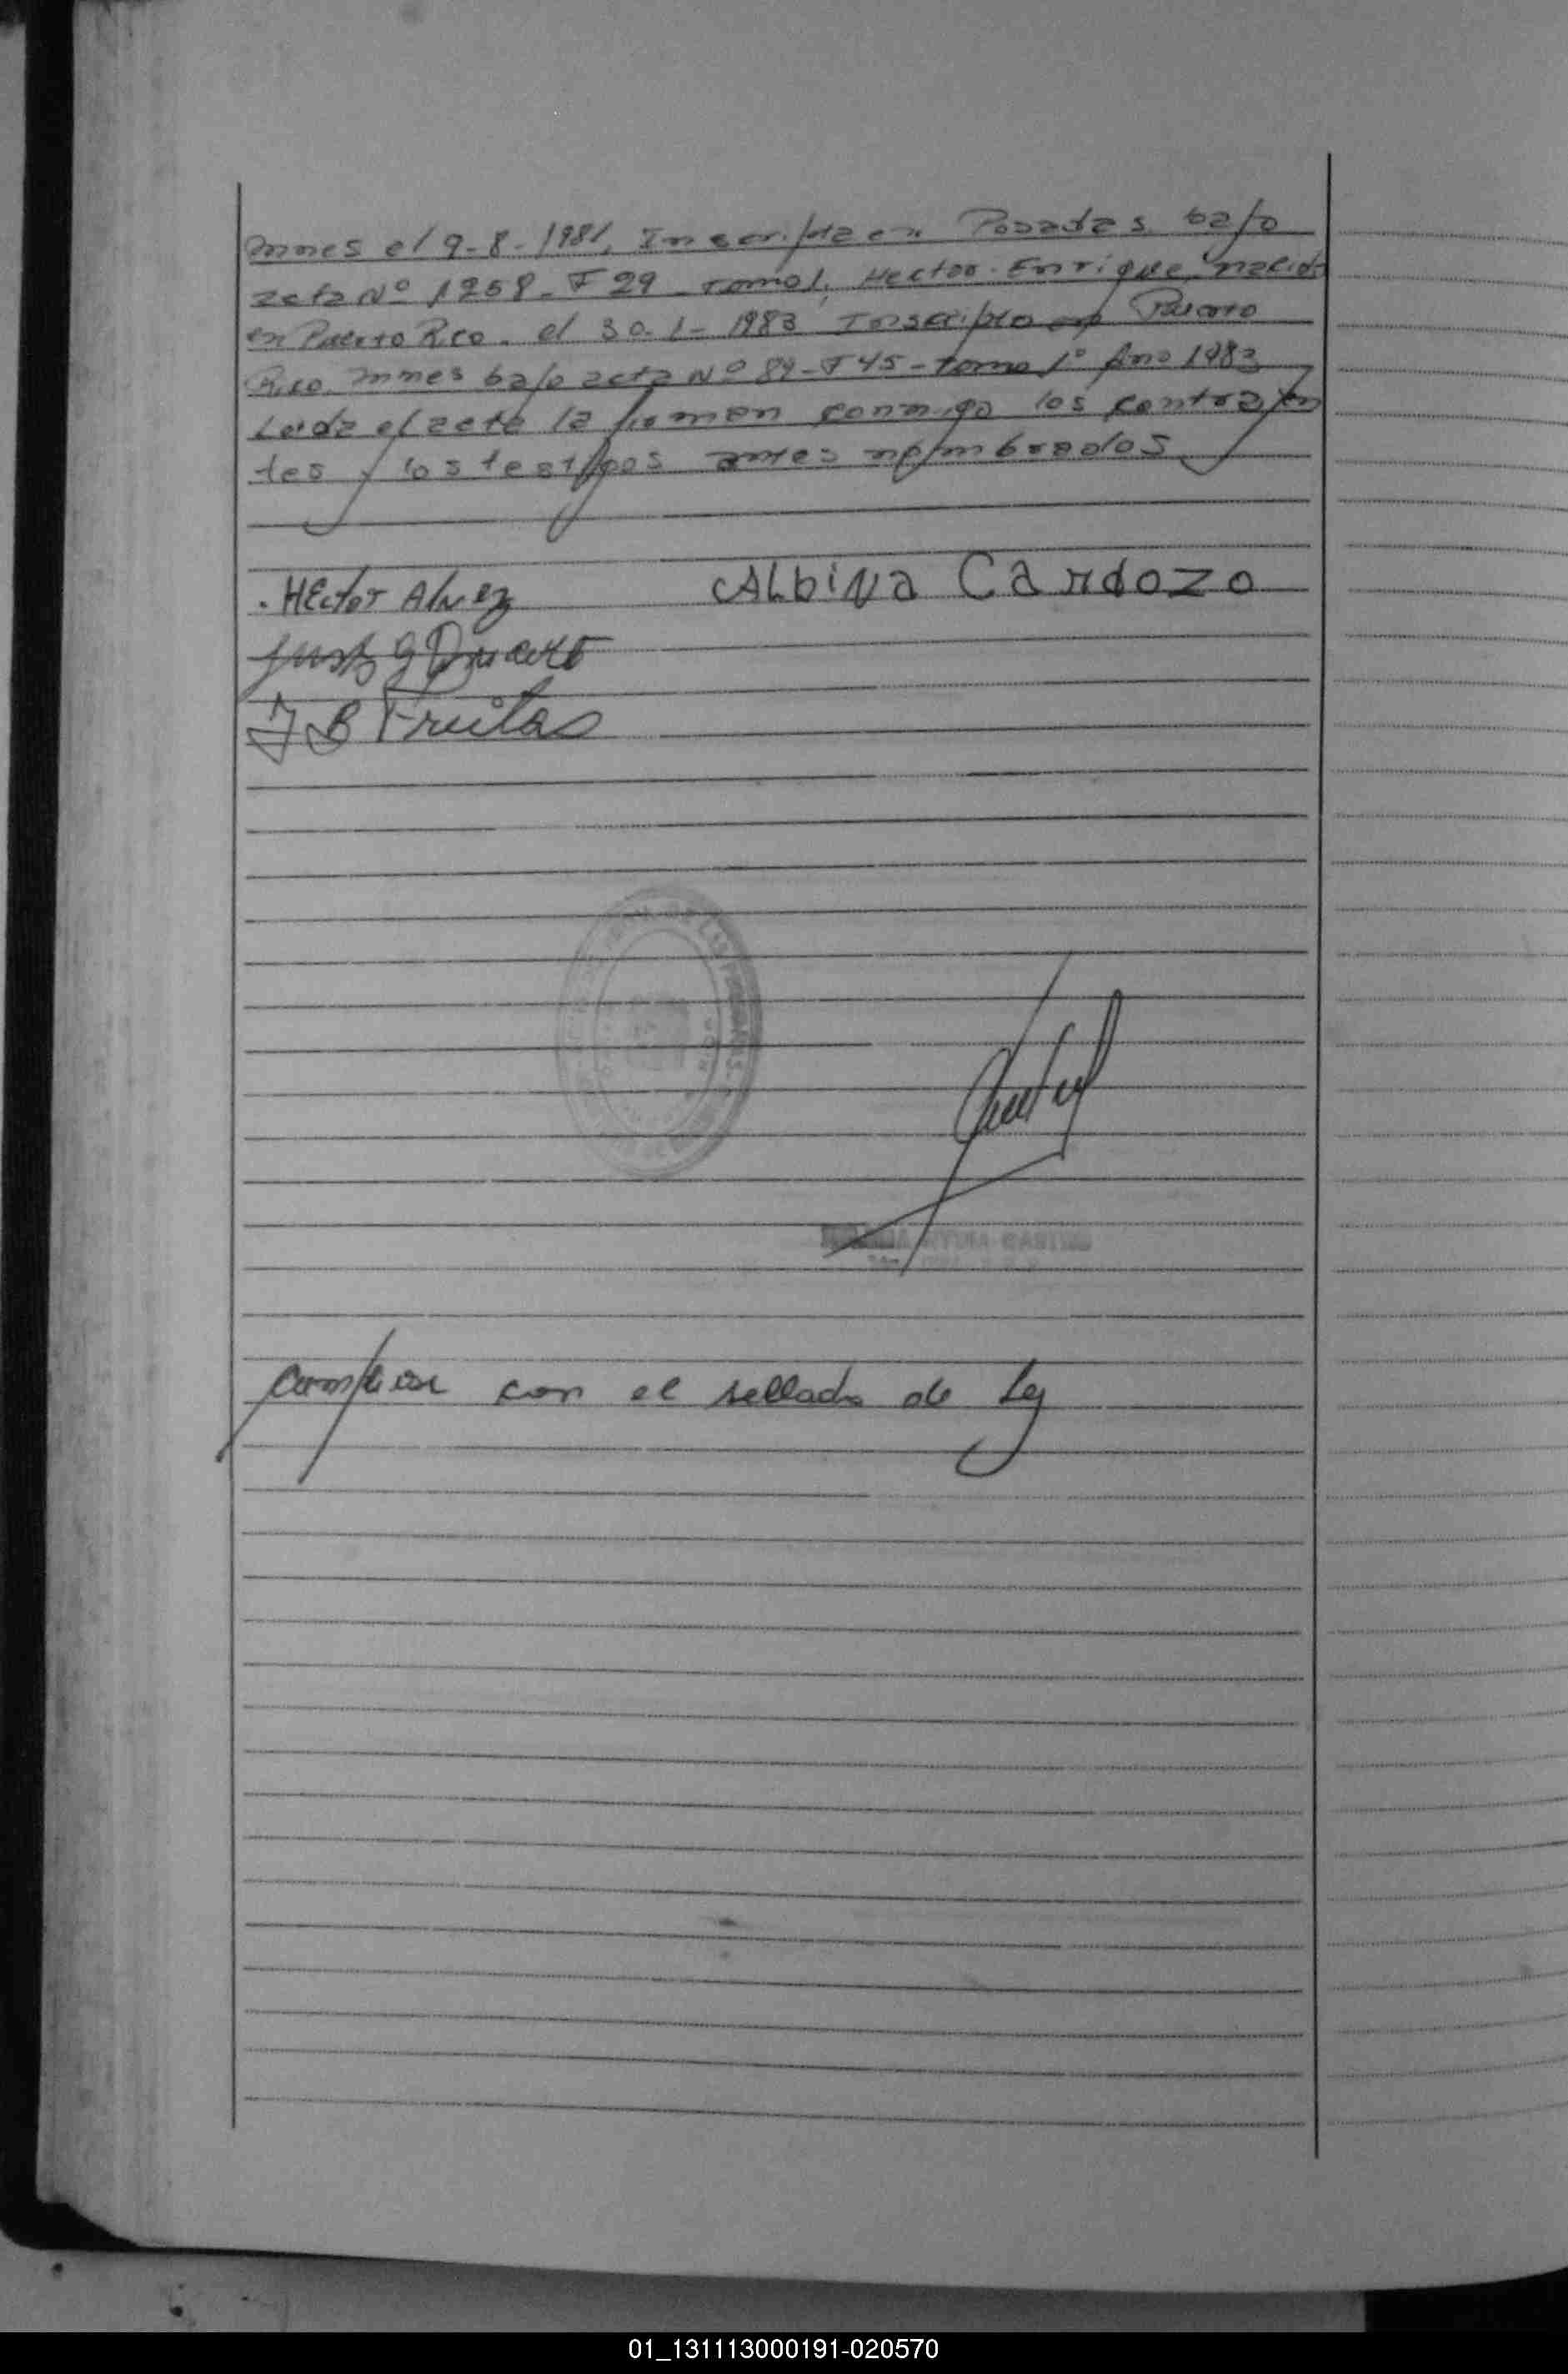 mnes el 9-8-1981, Inscripta en Posadas bajo
acta Nº 1258-F 29-tomo 1, Hector Enrique, nacido
en Puerto Rico. el 30-1-1983 Inscripto en Puerto
Rico. mnes bajo acta Nº 89-F 45-tomo 1º Año 1983
Leida el acta la firman conmigo los contrayen
tes y los testigos antes nombrados
Hector Alvez Albina Cardozo
J B Freitas
DE LAS PERSONAS
con el sellado de Ley
01_131113000191-020570